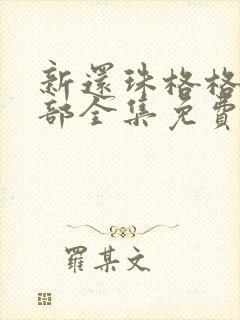 新還珠格格
部全集免費
羅某文